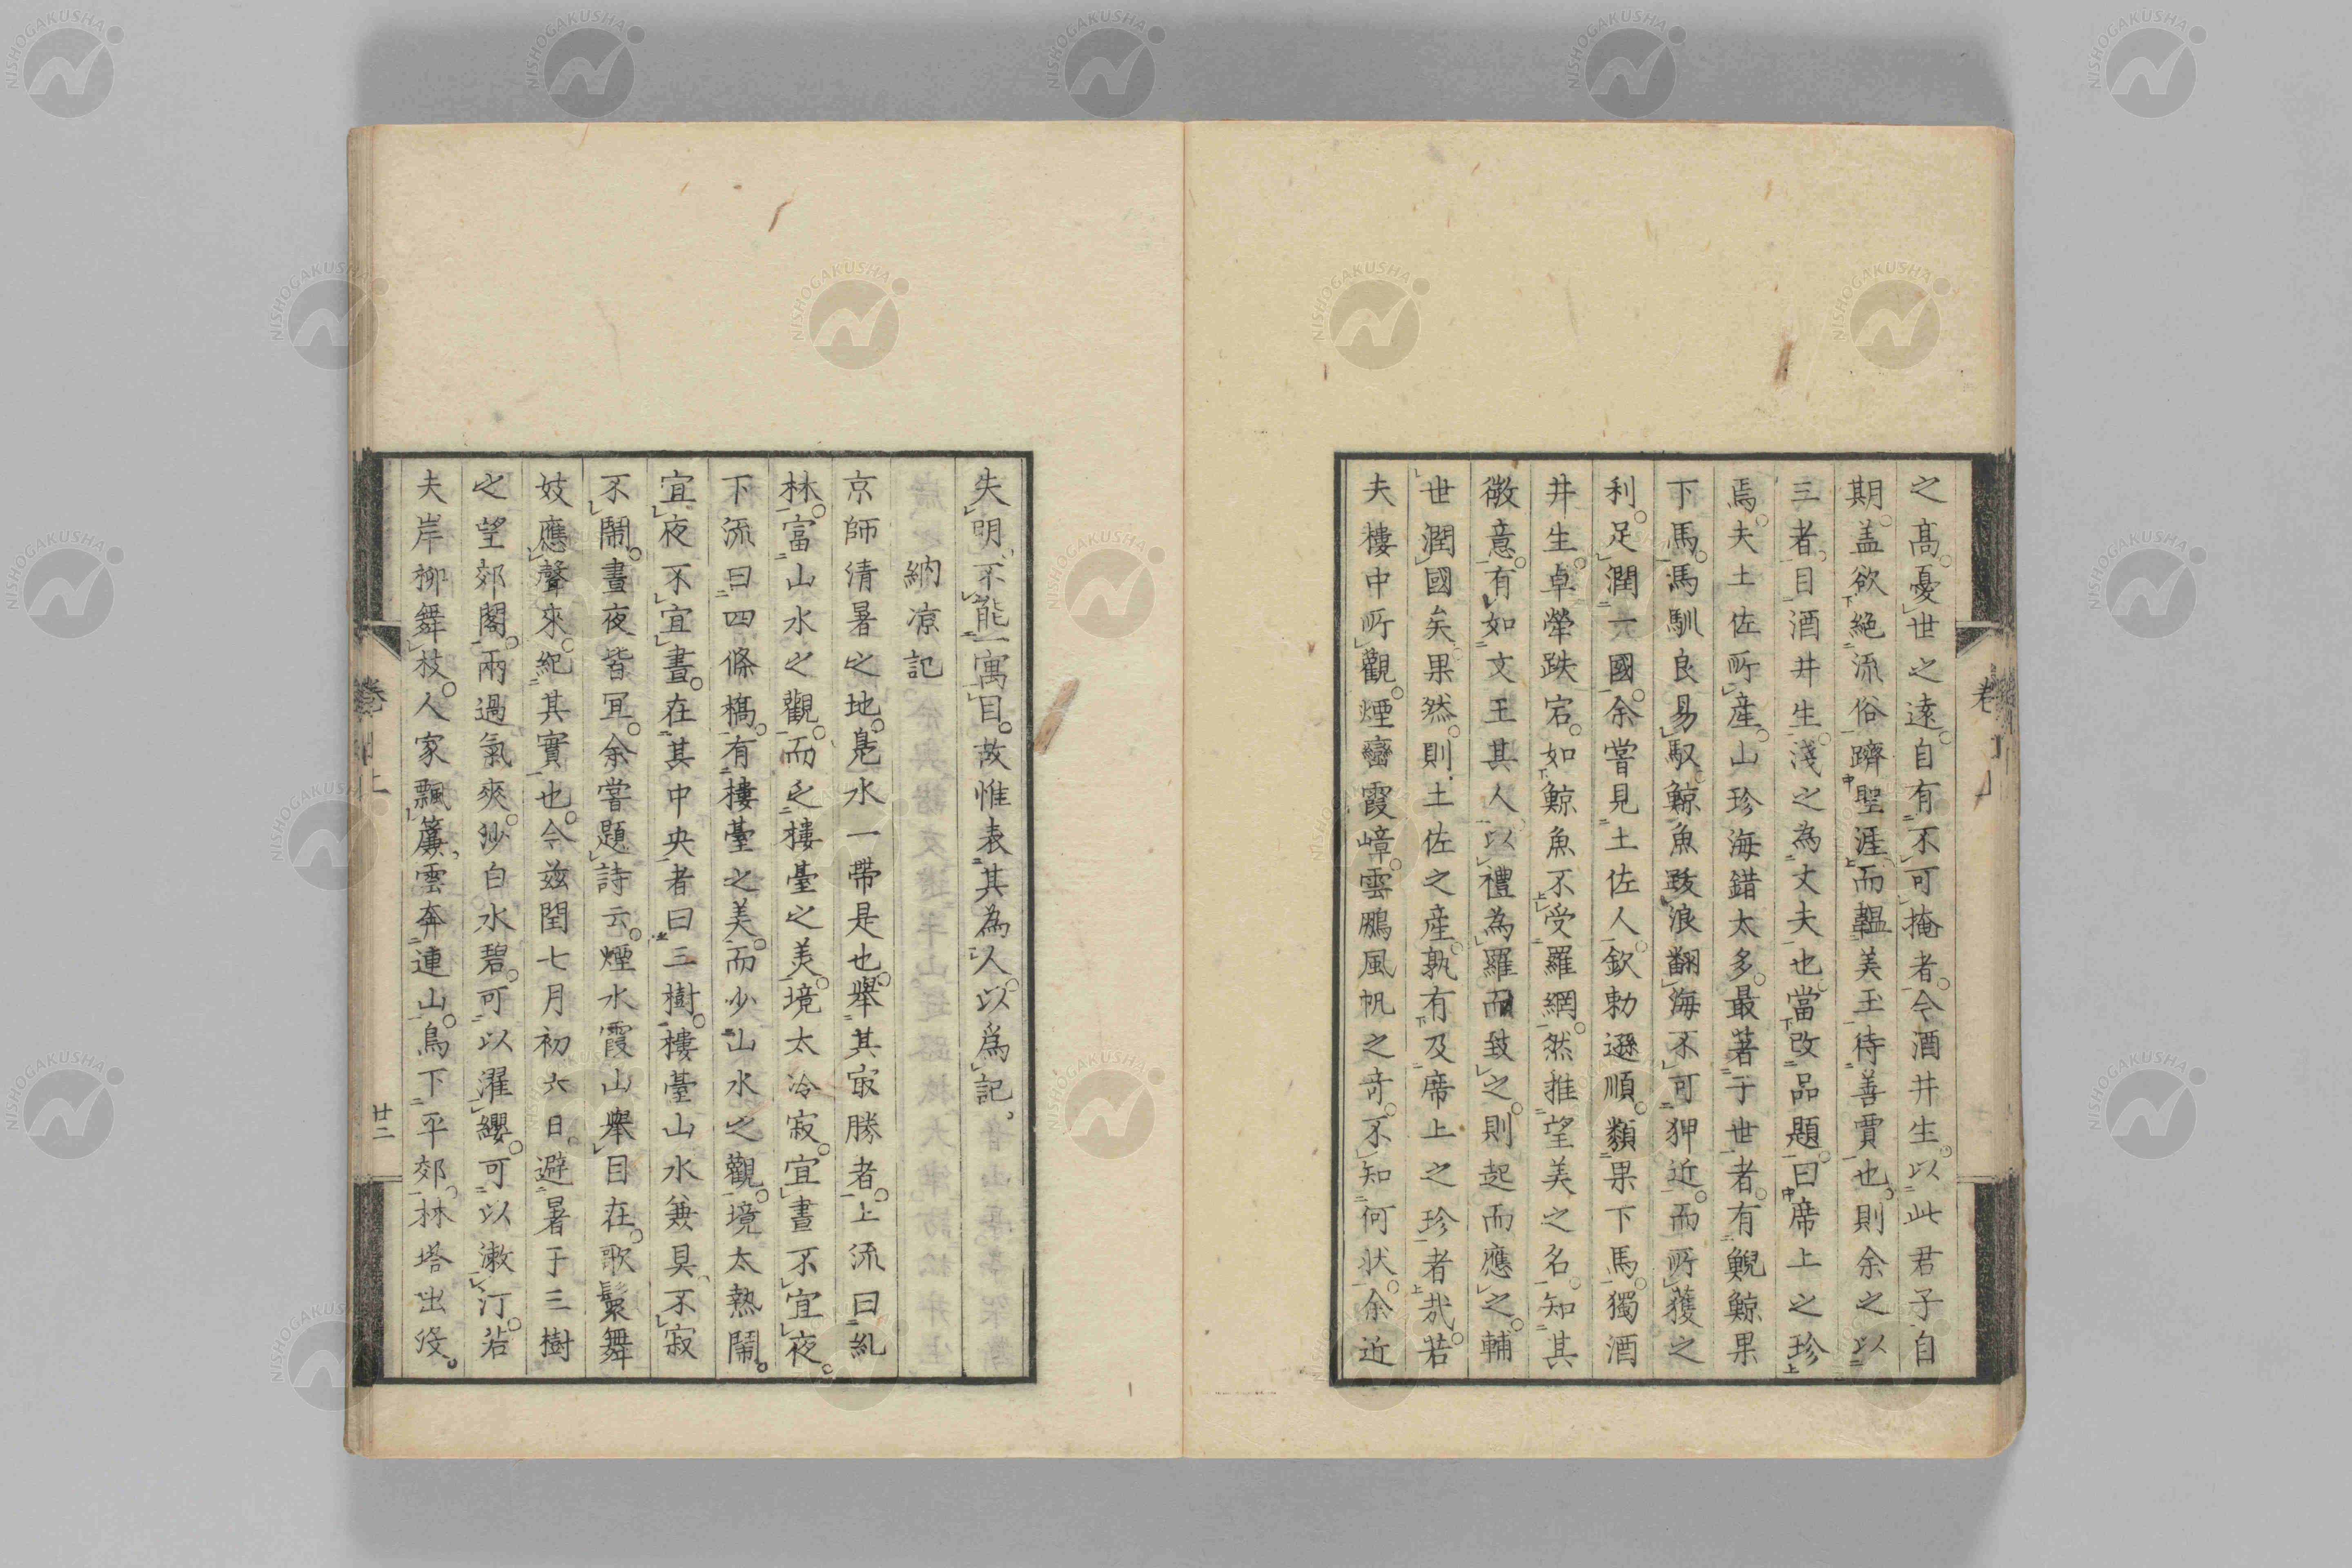 之高。憂世之遠。自有不可掩者。今酒井生。以此君子自
期。盖欲絕流俗躋聖涯而韞美玉待善賈也。則余之以
三者。目酒井生。淺之為丈夫也。當改品題。曰席上之珍
焉。夫土佐所產。山珍海錯太多。最著于世者。有鯢鯨果
下馬。馬馴良易馭。鯨魚跋浪翻海不可狎近。而所獲之
利。足潤一國。余嘗見土佐人。欽勅遜順。類果下馬。獨酒
井生。卓犖跌宕。如鯨魚不受羅網。然推望美之名。知其
微意。有如文王其人。以禮為羅而致之。則起而應之。輔
世潤國矣。果然。則土佐之產。孰有及席上之珍者哉。若
夫樓中所觀。煙巒霞嶂。雲鵬風帆之奇。不知何狀。余近
失明不能寓目。故惟表其為人。以爲記。
納凉記
京師清暑之地。鳧水一帶是也。舉其㝡勝者。上流曰糺
林。富山水之觀。而乏樓臺之美。境太冷寂。宜晝不宜夜。
下流曰四條橋。有樓臺之美。而少山水之觀。境太熱鬧。
宜夜不宜晝。在其中央者曰三樹。樓臺山水兼具。不寂
不鬧。晝夜皆冝。余嘗題詩云。煙水霞山舉目在。歌鬟舞
妓應聲來。紀其實也。今兹閏七月初六日。避暑于三樹
之望郊閣。雨過氣爽。沙白水碧。可以濯纓。可以漱汀。若
夫岸柳舞枝。人家飄簾、雲奔連山。鳥下平郊。林塔出沒。
卷
上
廿二
NISHOGAKUSHA